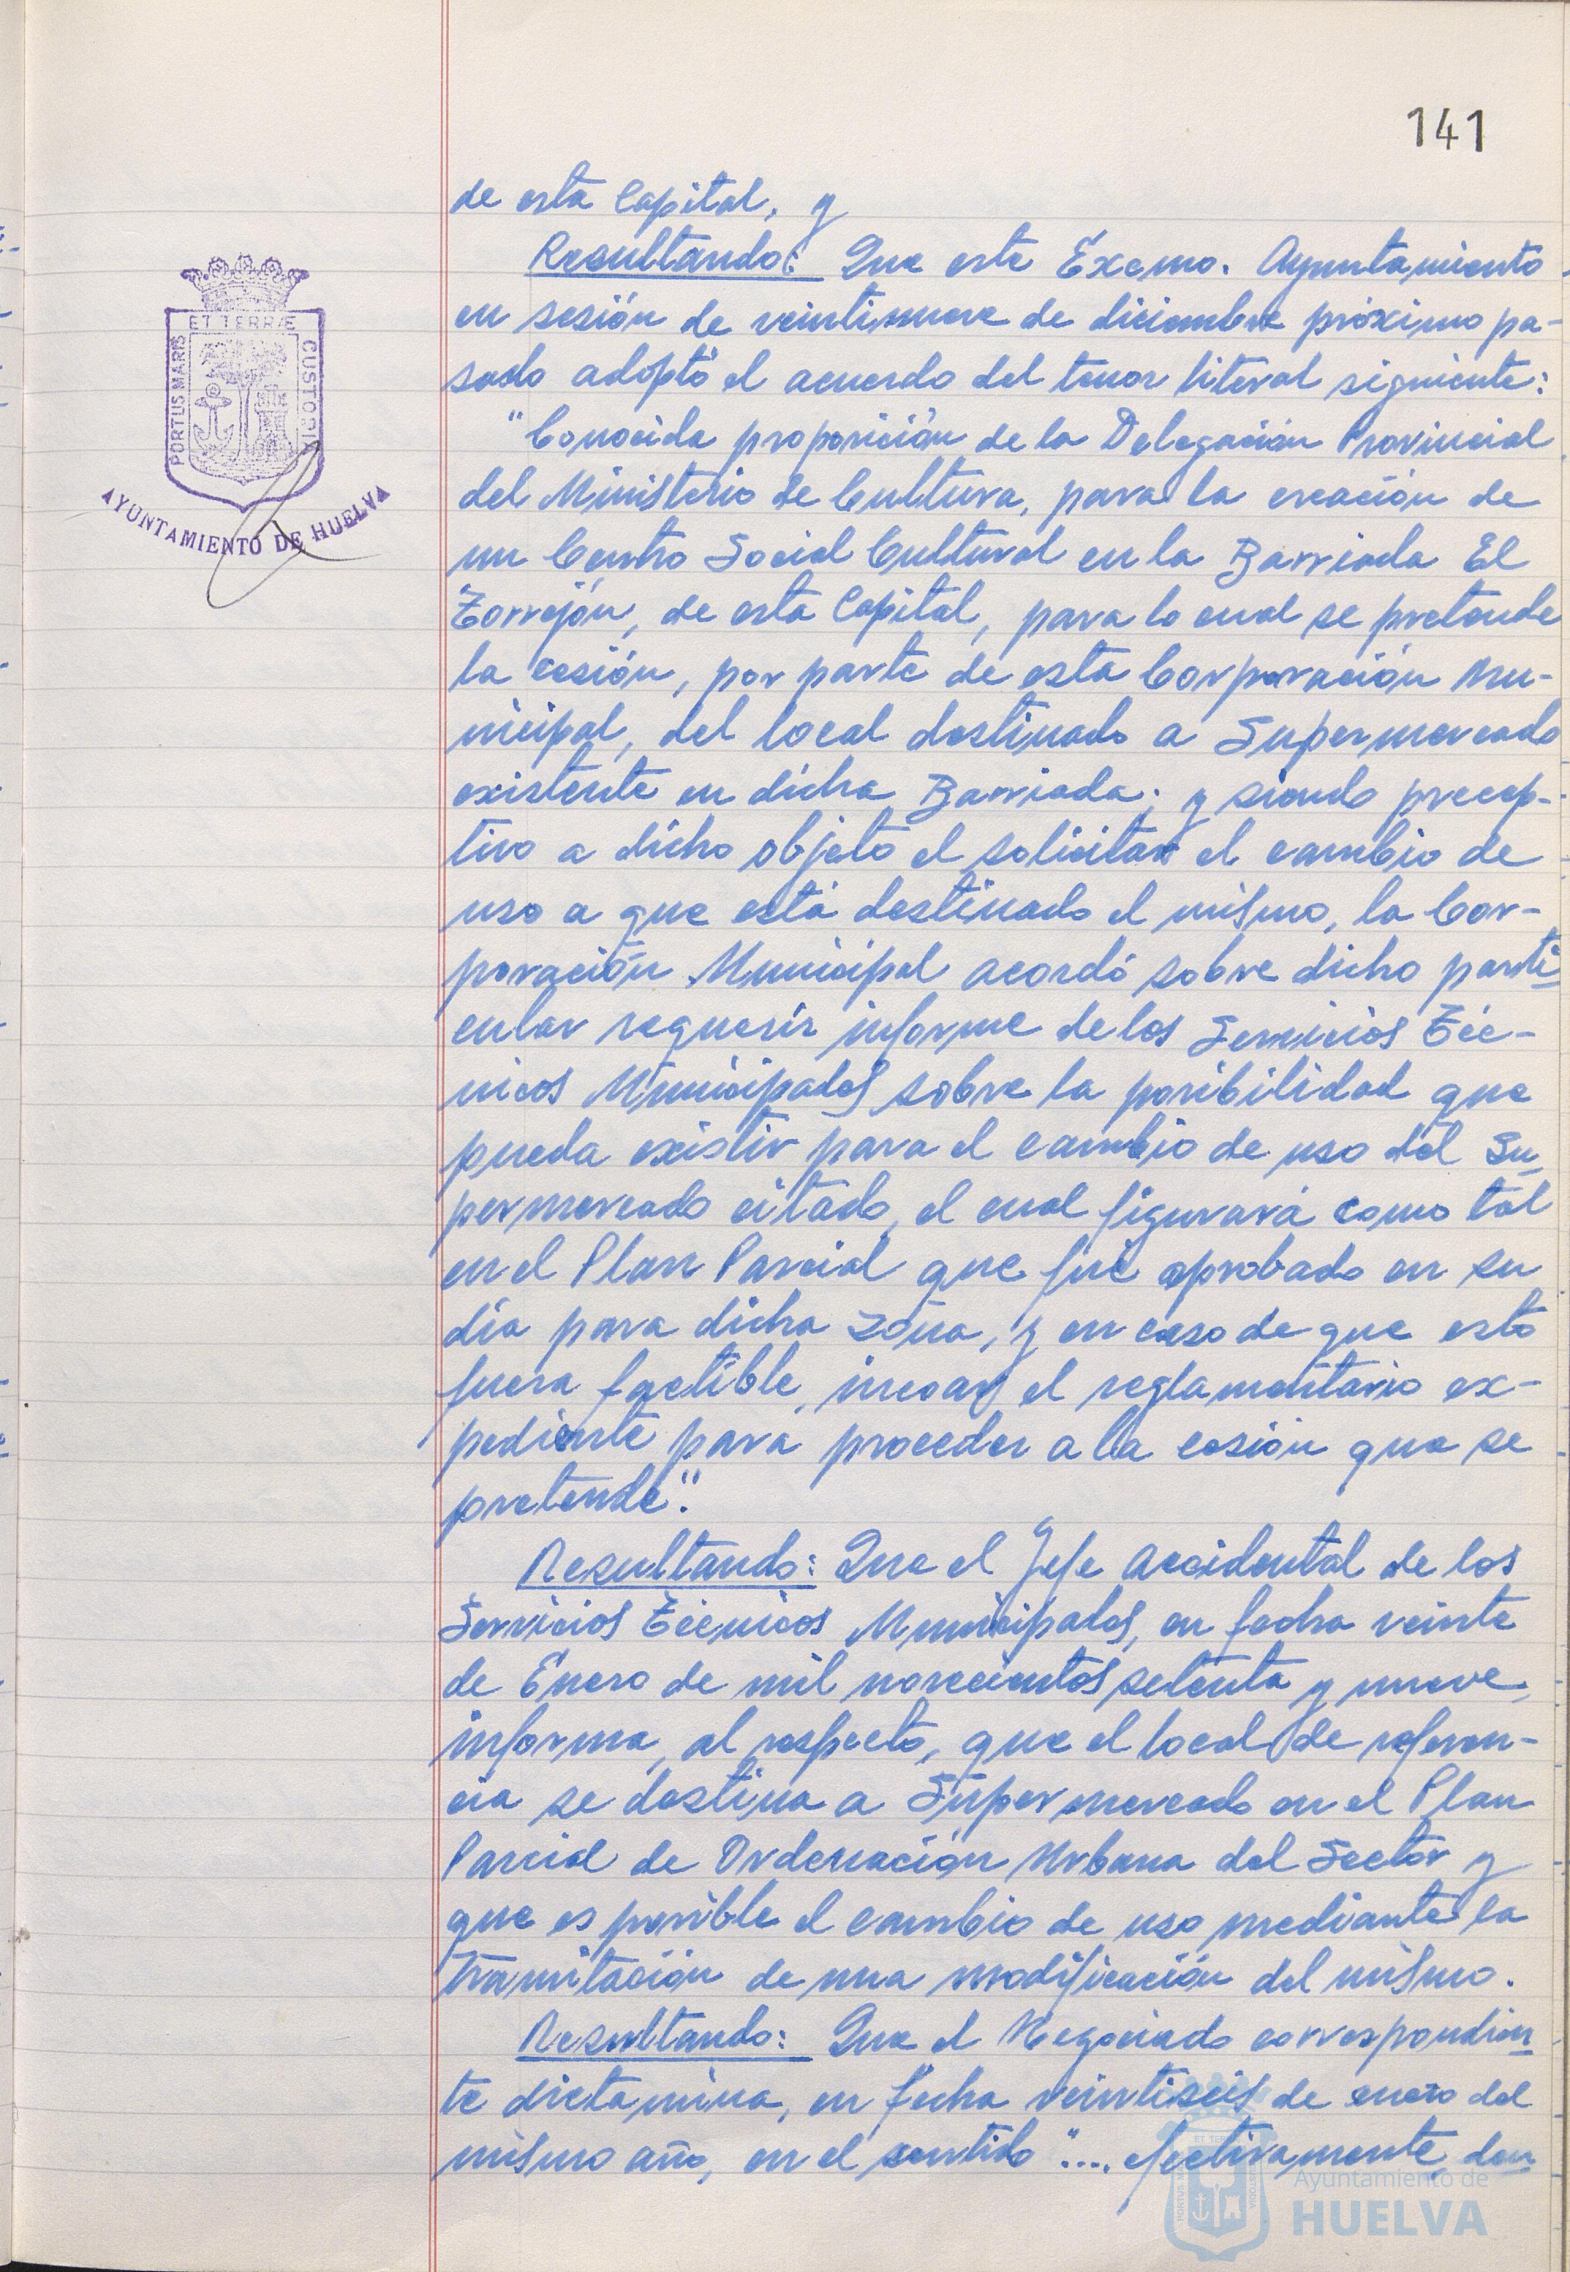 141
de esta Capital, y
Resultando: Que este Excmo. Ayuntamiento
en sesión de veintinueve de diciembre próximo pa-
sado adoptó el acuerdo del tenor literal siguiente:
"Conocida proposición de la Delegación Provincial
del Ministerio de Cultura, para la creación de
un Centro Social Cultural en la Barriada El
Torrejón, de esta Capital, para lo cual se pretende
la cesión, por parte de esta Corporación Mu-
nicipal, del local destinado a Supermercado
existente en dicha Barriada; y siendo precep-
tivo a dicho objeto el solicitar el cambio de
uso a que está destinado el mismo, la Cor-
poración Municipal acordó sobre dicho parti-
cular requerir informe de los Servicios Téc-
nicos Municipales sobre la posibilidad que
pueda existir para el cambio de uso del Su-
permercado citado, el cual figurará como tal
en el Plan Parcial que fué aprobado en su
día para dicha zona, y en caso de que esto
fuera factible, incoar el reglamentario ex-
pediente para proceder a la cesión que se
pretende".
Resultando: Que el Jefe Accidental de los
Servicios Técnicos Municipales, en fecha veinte
de Enero de mil novecientos setenta y nueve,
informa, al respecto, que el local de referen-
cia se destina a Supermercado en el Plan
Parcial de Ordenación Urbana del Sector y
que es posible el cambio de uso mediante la
tramitación de una modificación del mismo.
Resultando: Que el Negociado correspondien-
te dictamina, en fecha veintiseis de enero del
mismo año, en el sentido ".... efectivamente, dan
PORTUS MARIS ET TERRAE CUSTODIA
AYUNTAMIENTO DE HUELVA
Ayuntamiento de
HUELVA